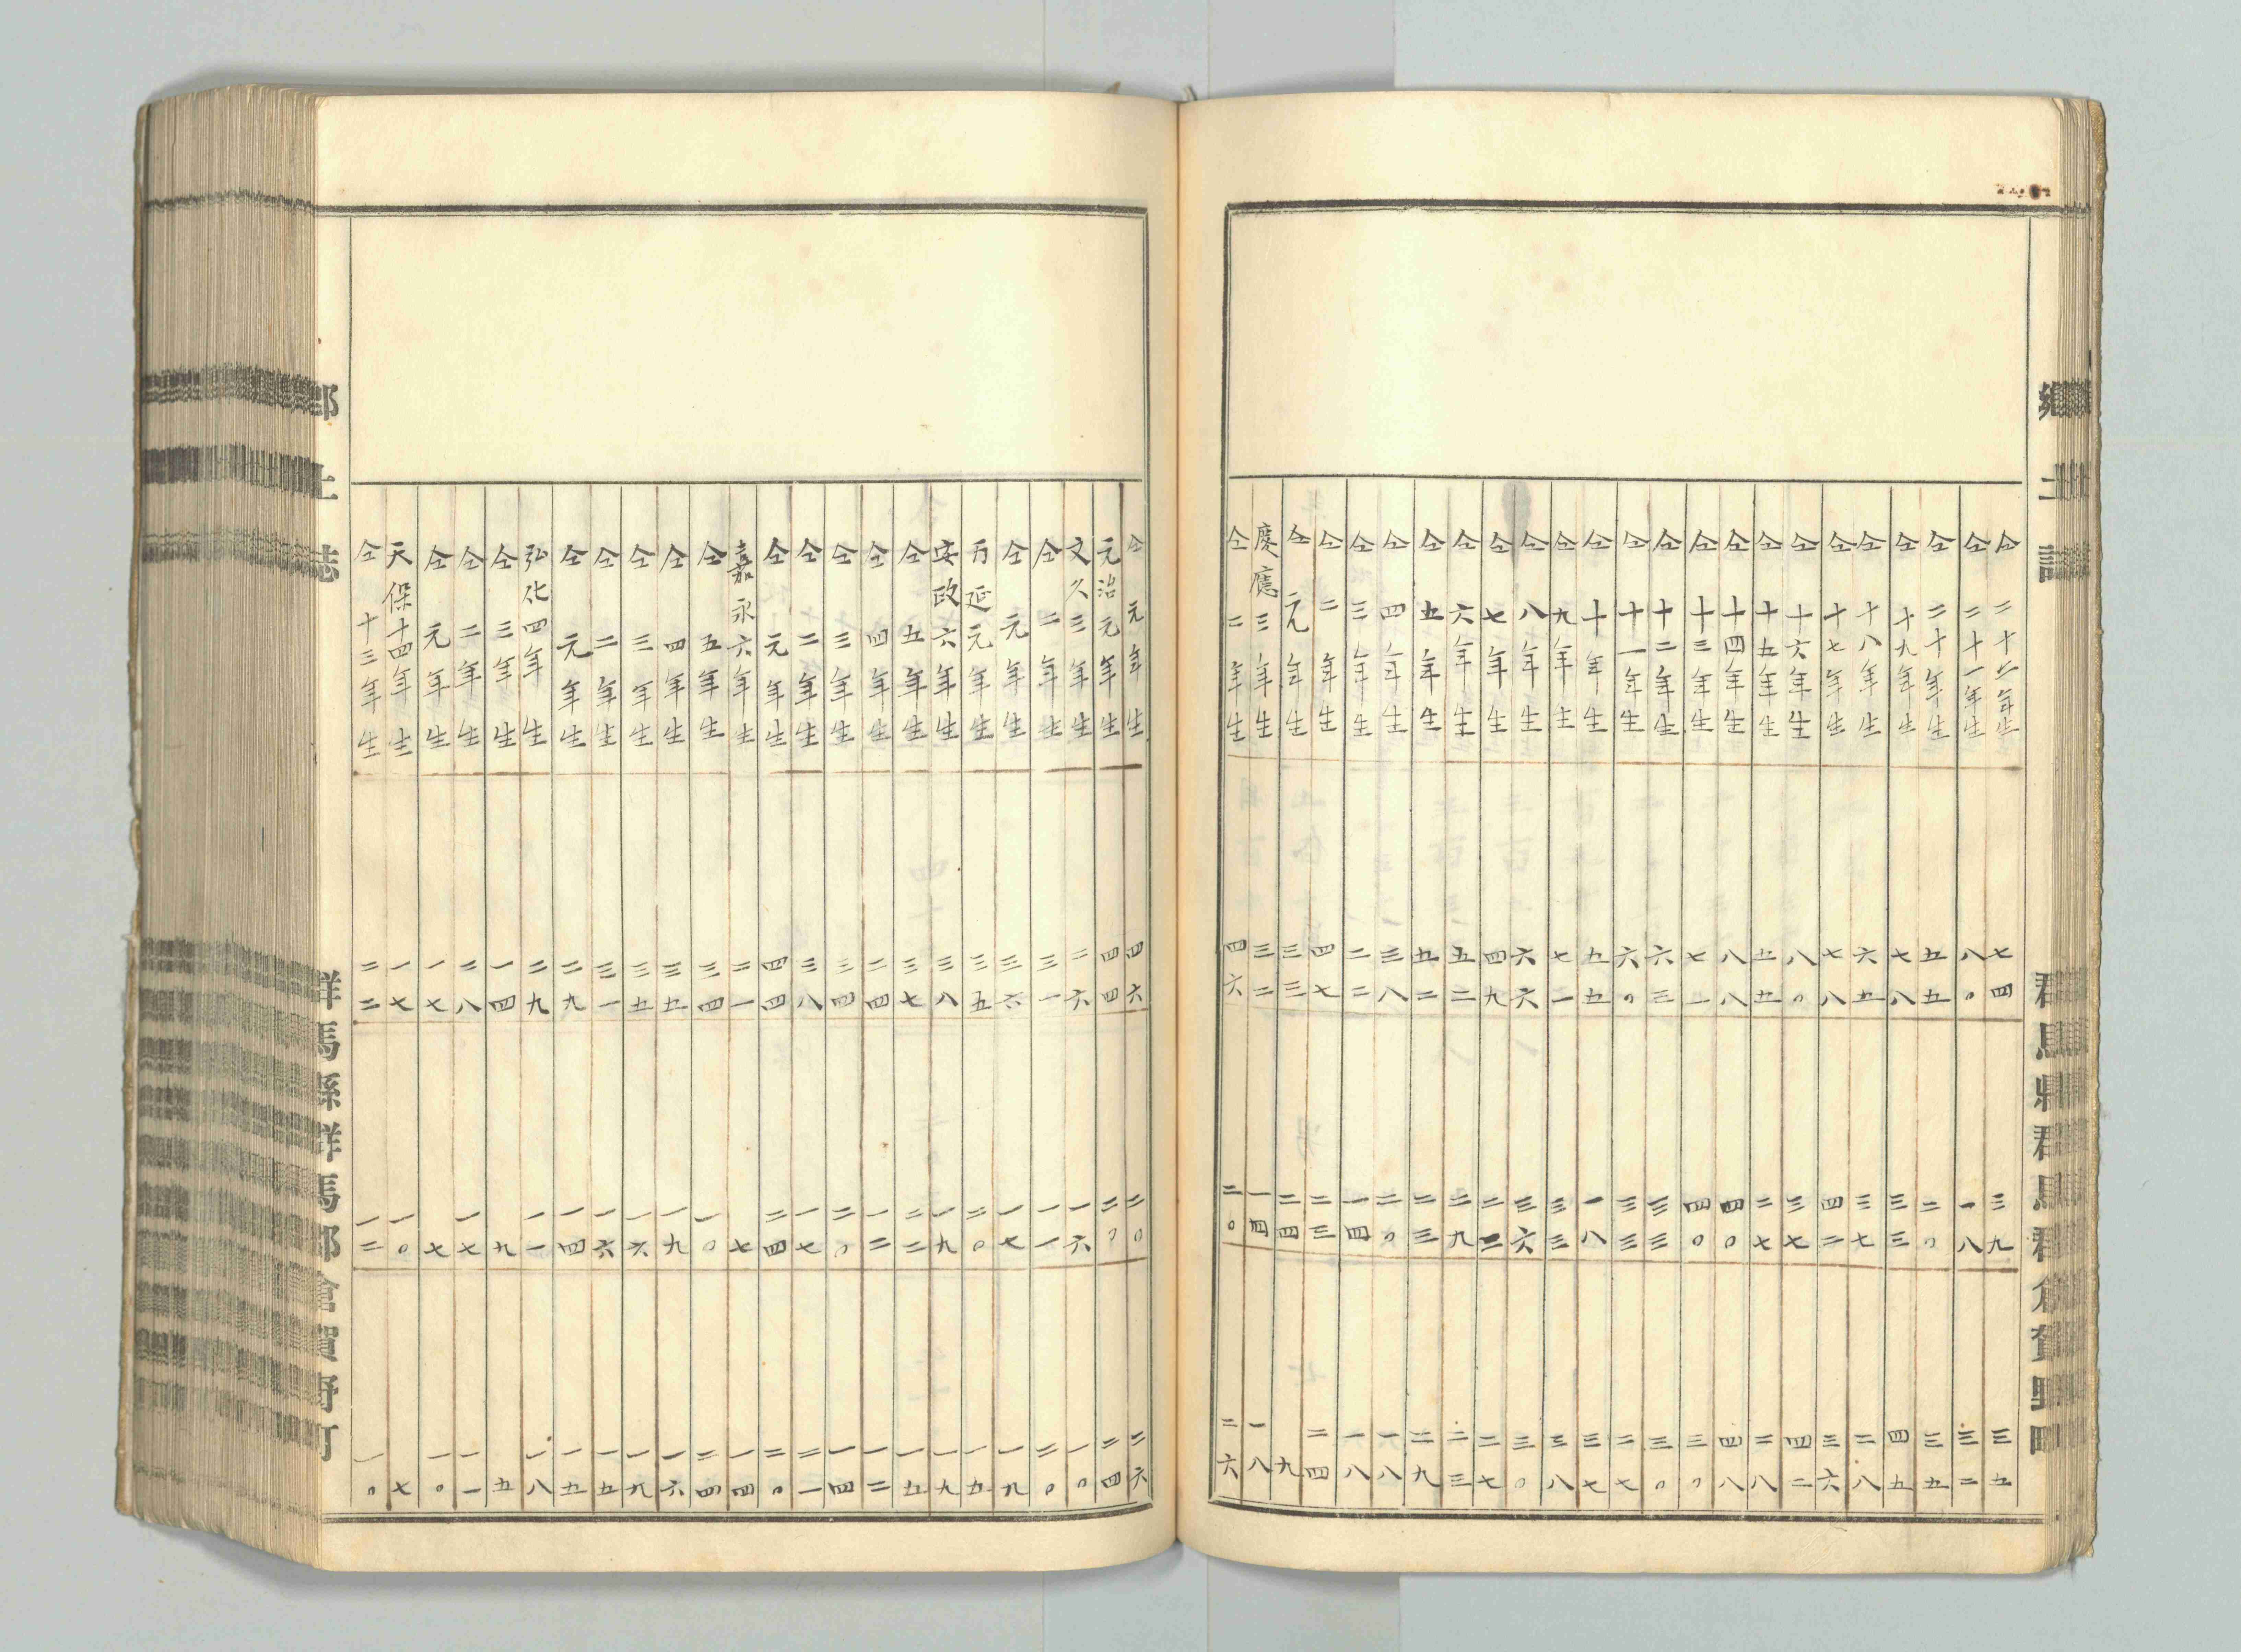 鄕土誌 群馬縣群馬郡倉賀野町
仝二十二年生 七四 三九 三五
仝二十一年生 八〇 一八 三二
仝二十年生 五五 二〇 三五
仝十九年生 七八 三三 四五
仝十八年生 六五 三七 二八
仝十七年生 七八 四二 三六
仝十六年生 八〇 三七 四二
仝十五年生 五五 二七 二八
仝十四年生 八八 四〇 四八
仝十三年生 七一 四〇 三〇
仝十二年生 六三 三三 三〇
仝十一年生 六〇 三三 二七
仝十年生 五五 一八 三七
仝九年生 七一 三三 三八
仝八年生 六六 三六 三〇
仝七年生 四九 二二 二七
仝六年生 五二 二九 二三
仝五年生 五二 二三 二九
仝四年生 三八 二〇 一八
仝三年生 三二 一四 一八
仝二年生 四七 二三 二四
仝元年生 三三 二四 九
慶應三年生 三二 一四 一八
仝二年生 四六 二〇 二六
仝元年生 四六 二〇 二六
元治元年生 四四 二〇 二四
文久三年生 二六 一六 一〇
仝二年生 三一 一一 二〇
仝元年生 三六 一七 一九
万延元年生 三五 二〇 一五
安政六年生 三八 一九 一九
仝五年生 三七 二二 一五
仝四年生 二四 一二 一二
仝三年生 三四 二〇 一四
仝二年生 三八 一七 二一
仝元年生 四四 二四 二〇
嘉永六年生 二一 七 一四
仝五年生 三四 一〇 二四
仝四年生 三五 一九 一六
仝三年生 三五 一六 一九
仝二年生 三一 一六 一五
仝元年生 二九 一四 一五
弘化四年生 二九 一一 一八
仝三年生 一四 九 五
仝二年生 二八 一七 一一
仝元年生 一七 七 一〇
天保十四年生 一七 一〇 七
仝十三年生 二二 一二 一〇
鄕土誌 群馬縣群馬郡倉賀野町